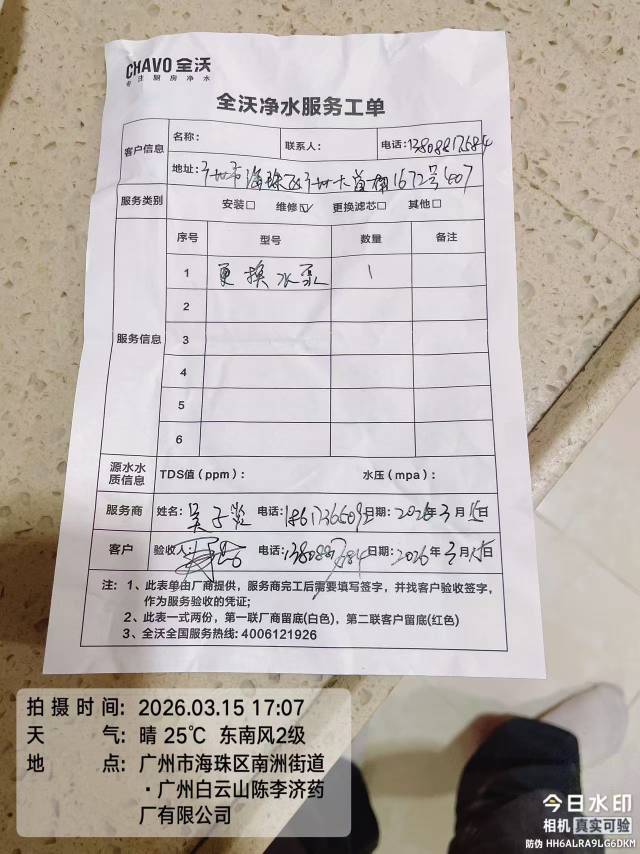 CHAVO 全沃
专注厨房净水
全沃净水服务工单
客户信息
名称： 联系人： 电话：13808817684
地址：广州市海珠区广州大道南1672号607
服务类别 安装□ 维修☑ 更换滤芯□ 其他□
服务信息
序号 型号 数量 备注
1 更换水泵 1
2
3
4
5
6
源水水质信息 TDS值（ppm）： 水压（mpa）：
服务商 姓名：吴子 电话： 日期：2026年3月15日
客户 验收人： 电话： 日期：2026年3月15日
注：1、此表单由厂商提供，服务商完工后需要填写签字，并找客户验收签字，
作为服务验收的凭证；
2、此表一式两份，第一联厂商留底(白色)，第二联客户留底(红色)
3、全沃全国服务热线: 4006121926
拍摄时间：2026.03.15 17:07
天气：晴 25℃ 东南风2级
地点：广州市海珠区南洲街道
·广州白云山陈李济药
厂有限公司
今日水印
相机 真实可验
防伪 HH6ALRA9LG6DKM